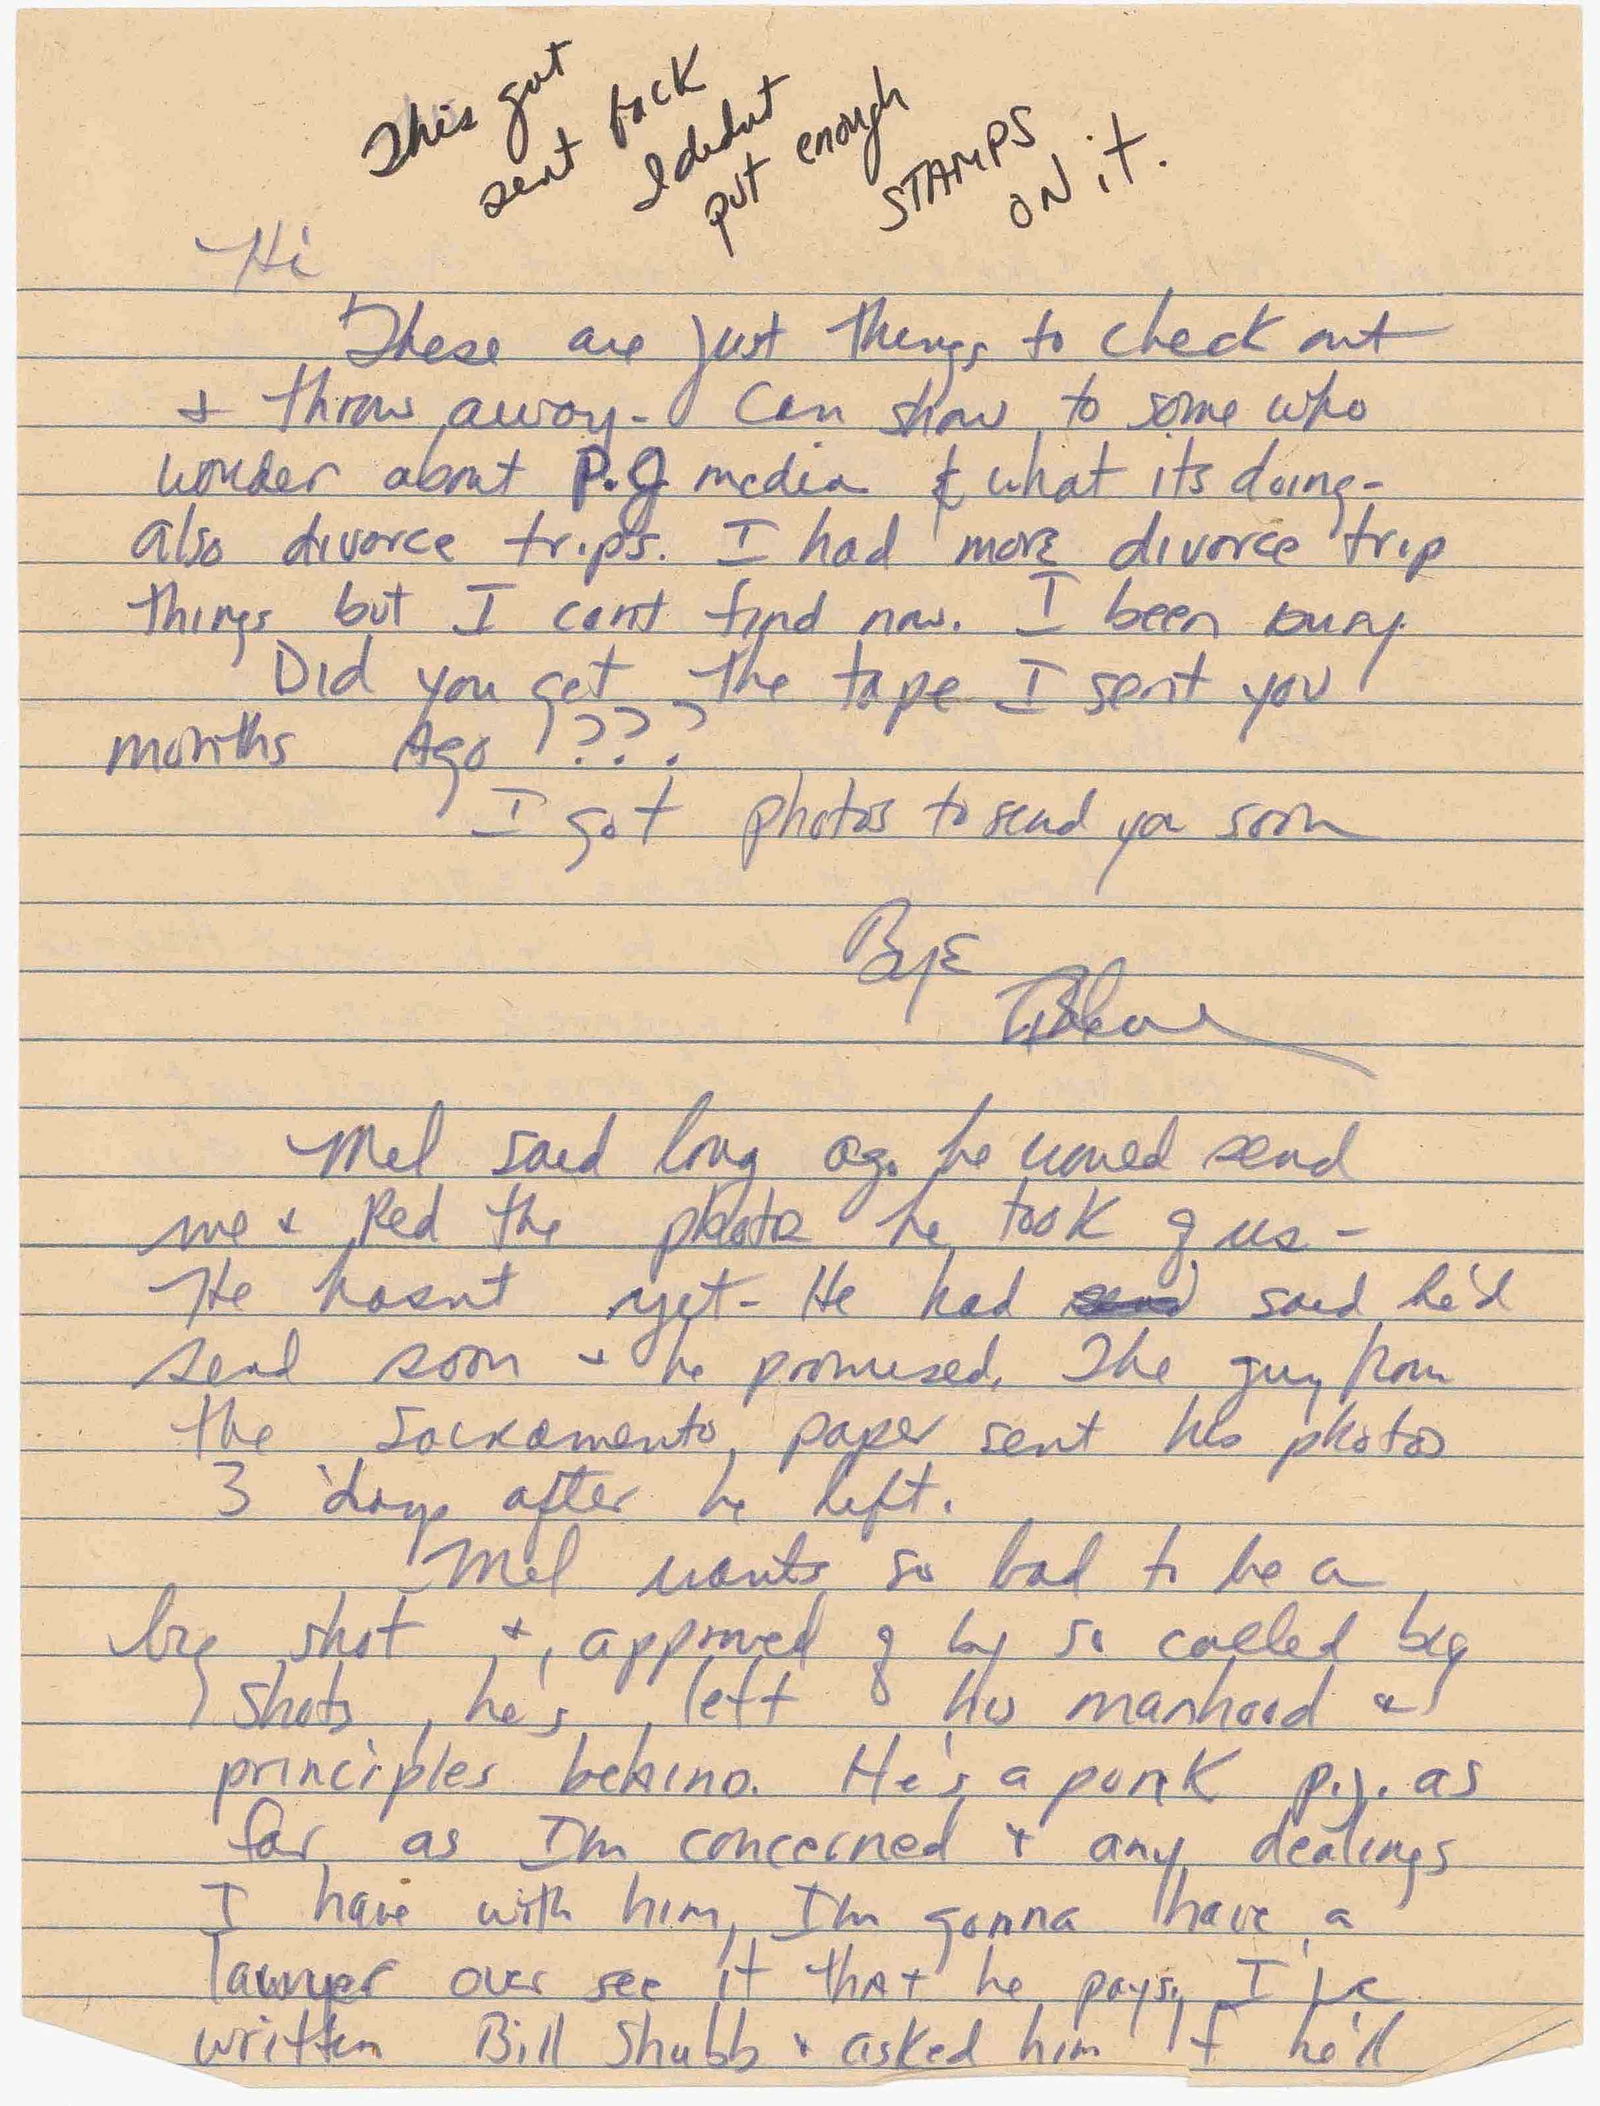 This got
sent back
I didnt
put enough
STAMPS
ON it.
Hi
These are just things to check out
+ throw away - Can show to some who
wonder about P.J. media & what its doing -
also divorce trips. I had more divorce trip
things but I cant find now. I been busy.
Did you get the tape I sent you
months Ago ????
I got photos to send you soon
Bye
Mel said long ago he would send
me + Red the photos he took of us -
He hasnt yet - He had said he'd
send soon + he promised. The guy from
the Sacramento paper sent his photos
3 days after he left.
Mel wants so bad to be a
big shot +, approved of by so called big
shots, he's left his manhood &
principles behind. He's a punk p.j. as
far as Im concerned + any dealings
I have with him, Im gonna have a
lawyer over see it that he pays, I've
written Bill Shubb + asked him if he'll